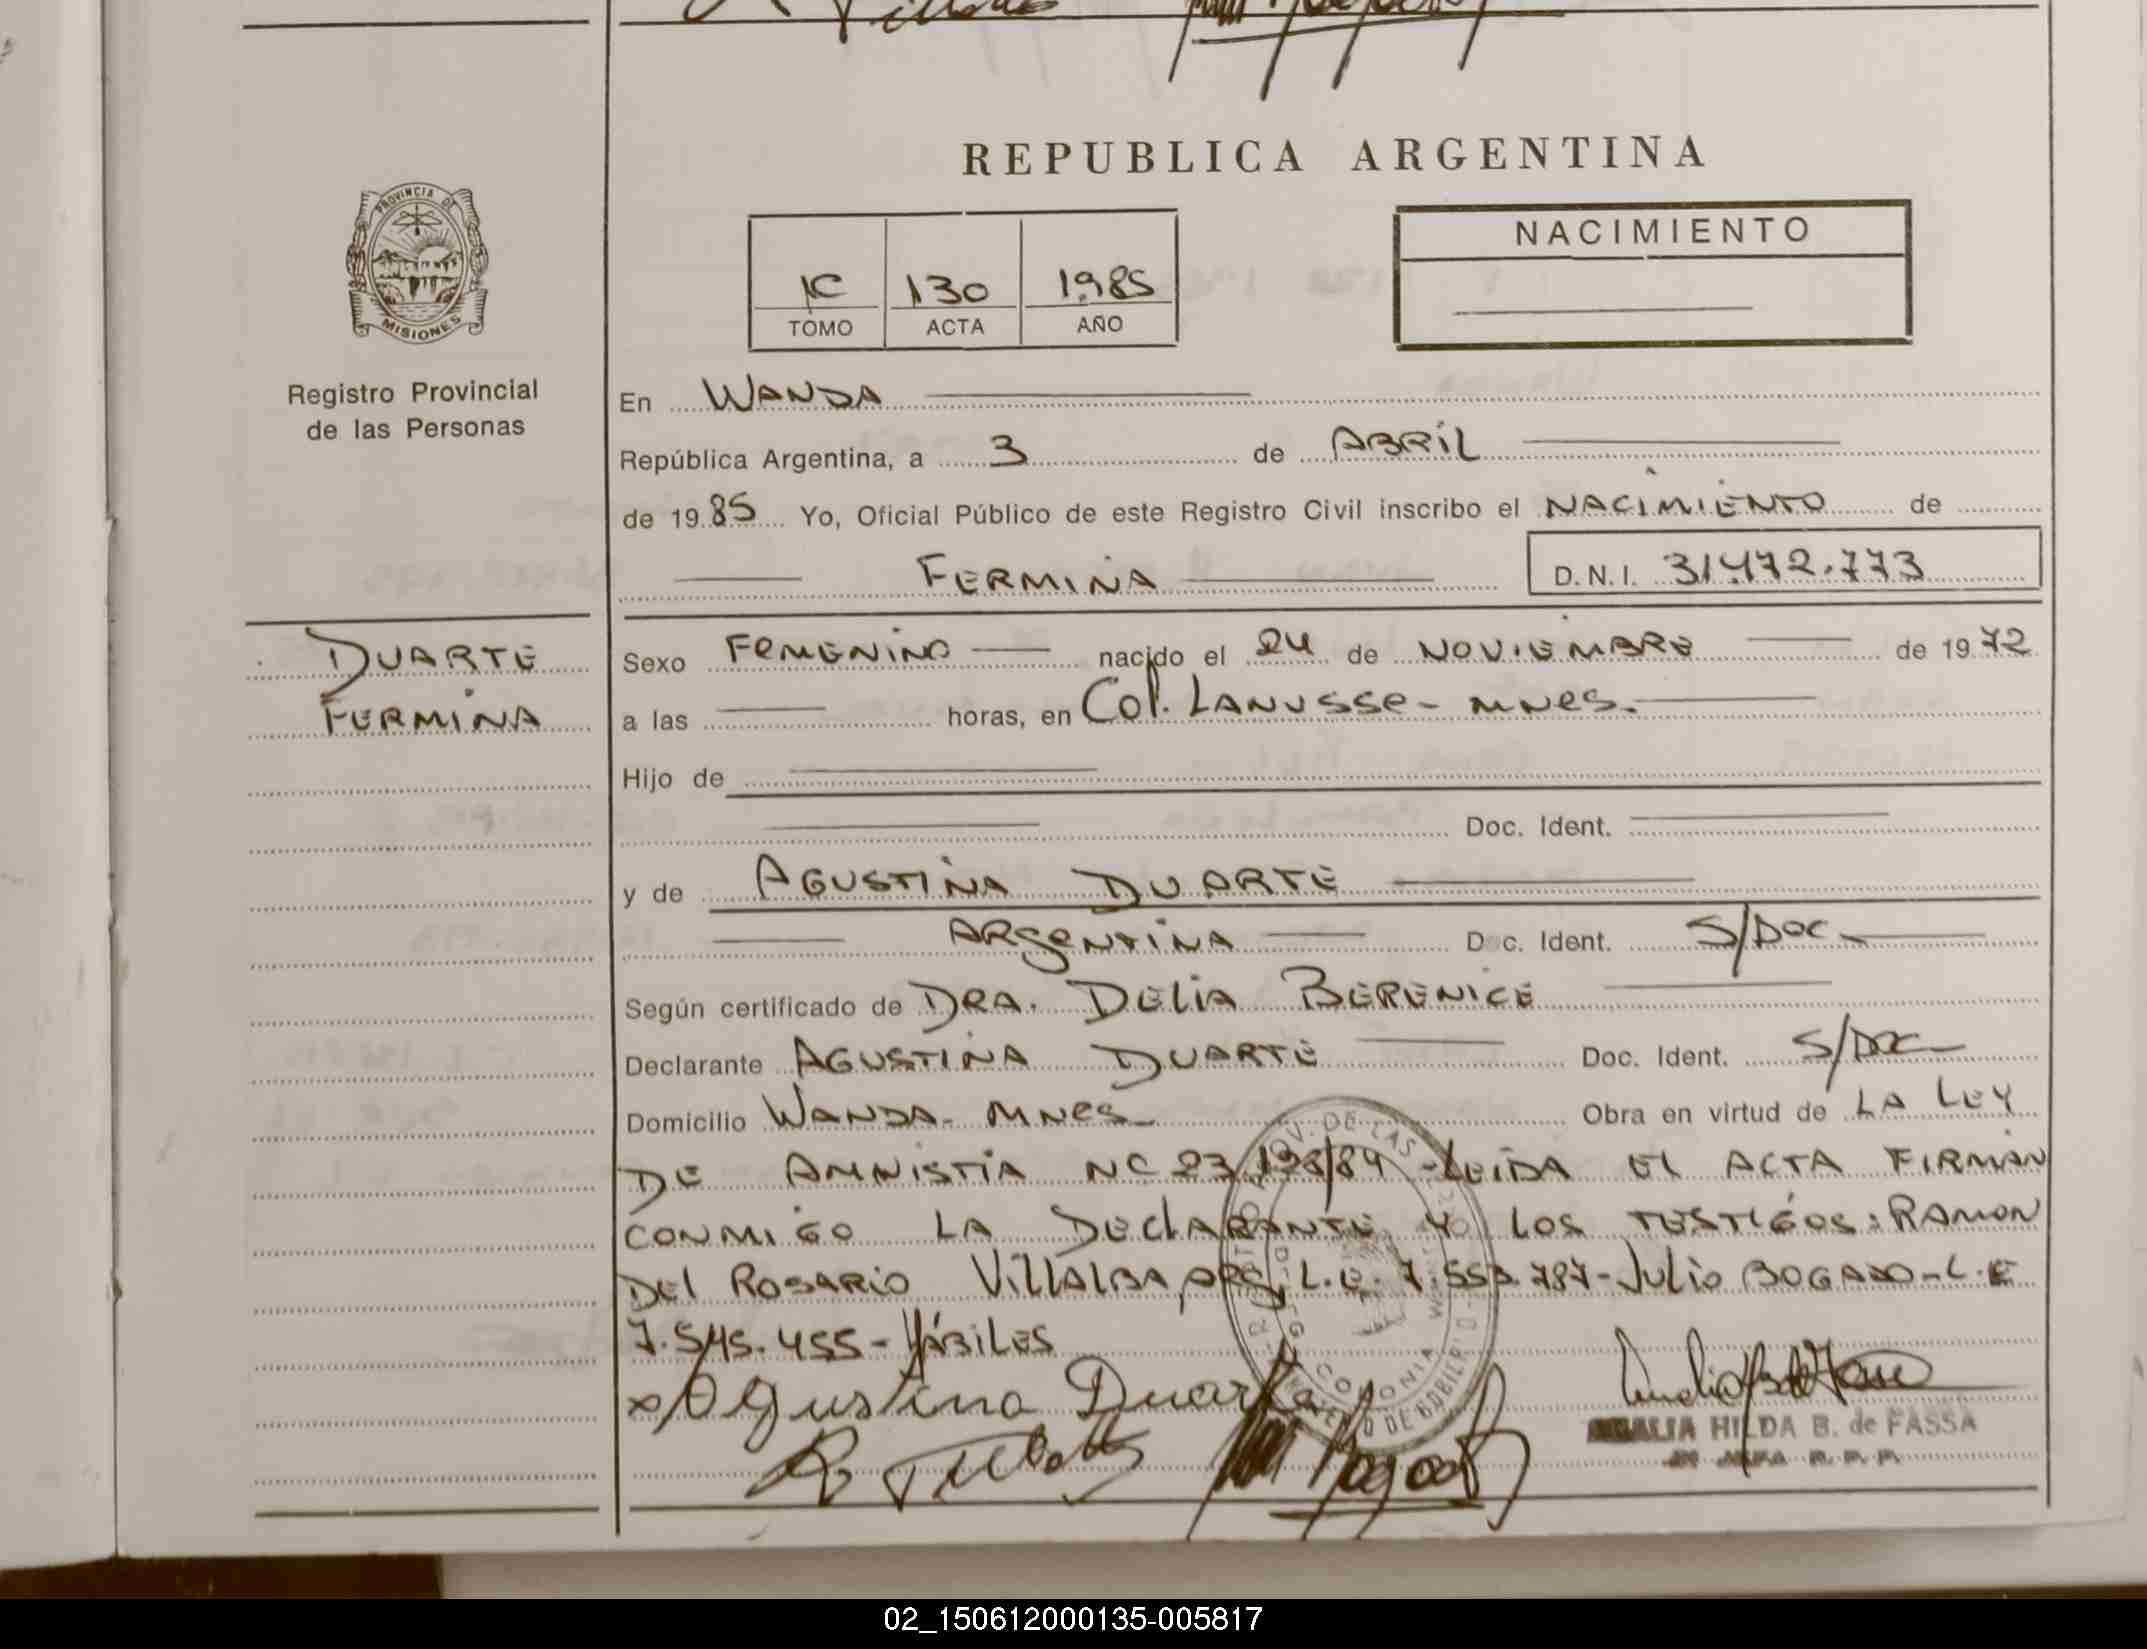 REPUBLICA ARGENTINA
PROVINCIA DE
MISIONES
Registro Provincial
de las Personas
NACIMIENTO
1C 130 1985
TOMO ACTA AÑO
En WANDA
República Argentina, a 3 de ABRIL
de 1985 Yo, Oficial Público de este Registro Civil inscribo el NACIMIENTO de
FERMINA D.N.I. 31.472.773
DUARTE
FERMINA
Sexo FEMENINO nacido el 24 de NOVIEMBRE de 1972
a las horas, en Col. LANUSSE - MNES.
Hijo de
Doc. Ident.
y de AGUSTINA DUARTE
ARGENTINA Doc. Ident. S/DOC
Según certificado de DRA. DELIA BERENICE
Declarante AGUSTINA DUARTE Doc. Ident. S/DOC
Domicilio WANDA - MNES Obra en virtud de LA LEY
DE AMNISTIA NC 23.128/84 - LEIDA EL ACTA FIRMAN
CONMIGO LA DECLARANTE Y LOS TESTIGOS: RAMON
DEL ROSARIO VILLALBA, ARG. L.E. 7.553.787 - JULIO BOGADO - L.E
7.545.455 - HÁBILES
Agustina Duarte
HILDA B. de FASSA
02_150612000135-005817